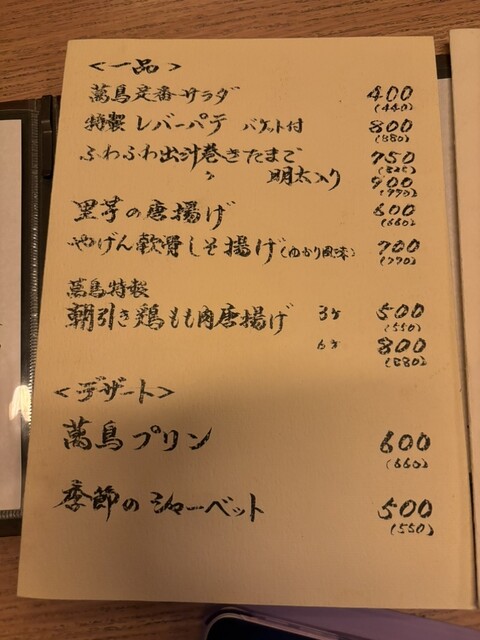 <一品>
萬鳥定番サラダ 400
(440)
特製 レバーパテ バケット付 800
(880)
ふわふわ出汁巻きたまご 750
(825)
〃 明太入り 900
(990)
里芋の唐揚げ 600
(660)
やげん軟骨しそ揚げ(ゆかり風味) 700
(770)
萬鳥特製
朝引き鶏もも肉唐揚げ 3ヶ 500
(550)
6ヶ 800
(880)
<デザート>
萬鳥プリン 600
(660)
季節のシャーベット 500
(550)